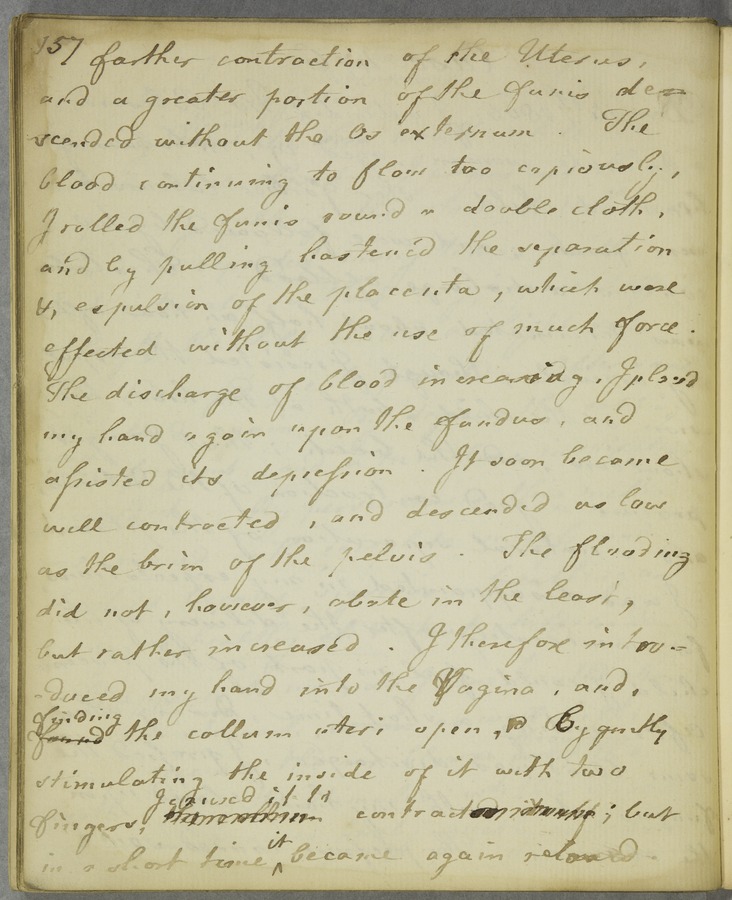 157
farther contraction of the Uterus,
and a greater portion of the funis de=
scended without the Os externum. The
blood continuing to flow too copiously,
I rolled the funis round a double cloth,
and by pulling hasten'd the separation
&, expulsion of the placenta, which were
effected without the use of much force.
The discharge of blood increasing, I placed
my hand again upon the fundus, and
assisted its depression. It soon became
well contracted, and descended as low
as the brim of the pelvis. The flooding
did not, however, abate in the least,
but rather increased. I therefore intro-
-duced my hand into the Vagina, and,
finding
found the collum uteri open, by gently
stimulating the inside of it with two
I caused it to
fingers, contract; but
it
in a short time, became again relaxed.